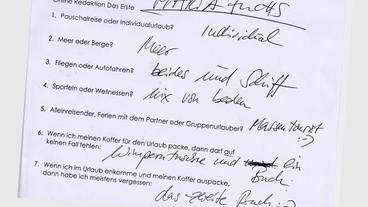 Online Redaktion Das Erste MARIA Fuchs
1. Pauschalreise oder Individualurlaub? Individual
2. Meer oder Berge? Meer
3. Fliegen oder Autofahren? beides und Schiff
4. Sporteln oder Wellnessen? Mix von beden
5. Alleinreisender, Ferien mit dem Partner oder Gruppenurlauber? Massentourist :-)
6. Wenn ich meinen Koffer für den Urlaub packe, dann darf auf
keinen Fall fehlen: Wimperntusche und ein
Buch.
7. Wenn ich im Urlaub ankomme und meinen Koffer auspacke,
dann habe ich meistens vergessen:
das zweite Buch :-)